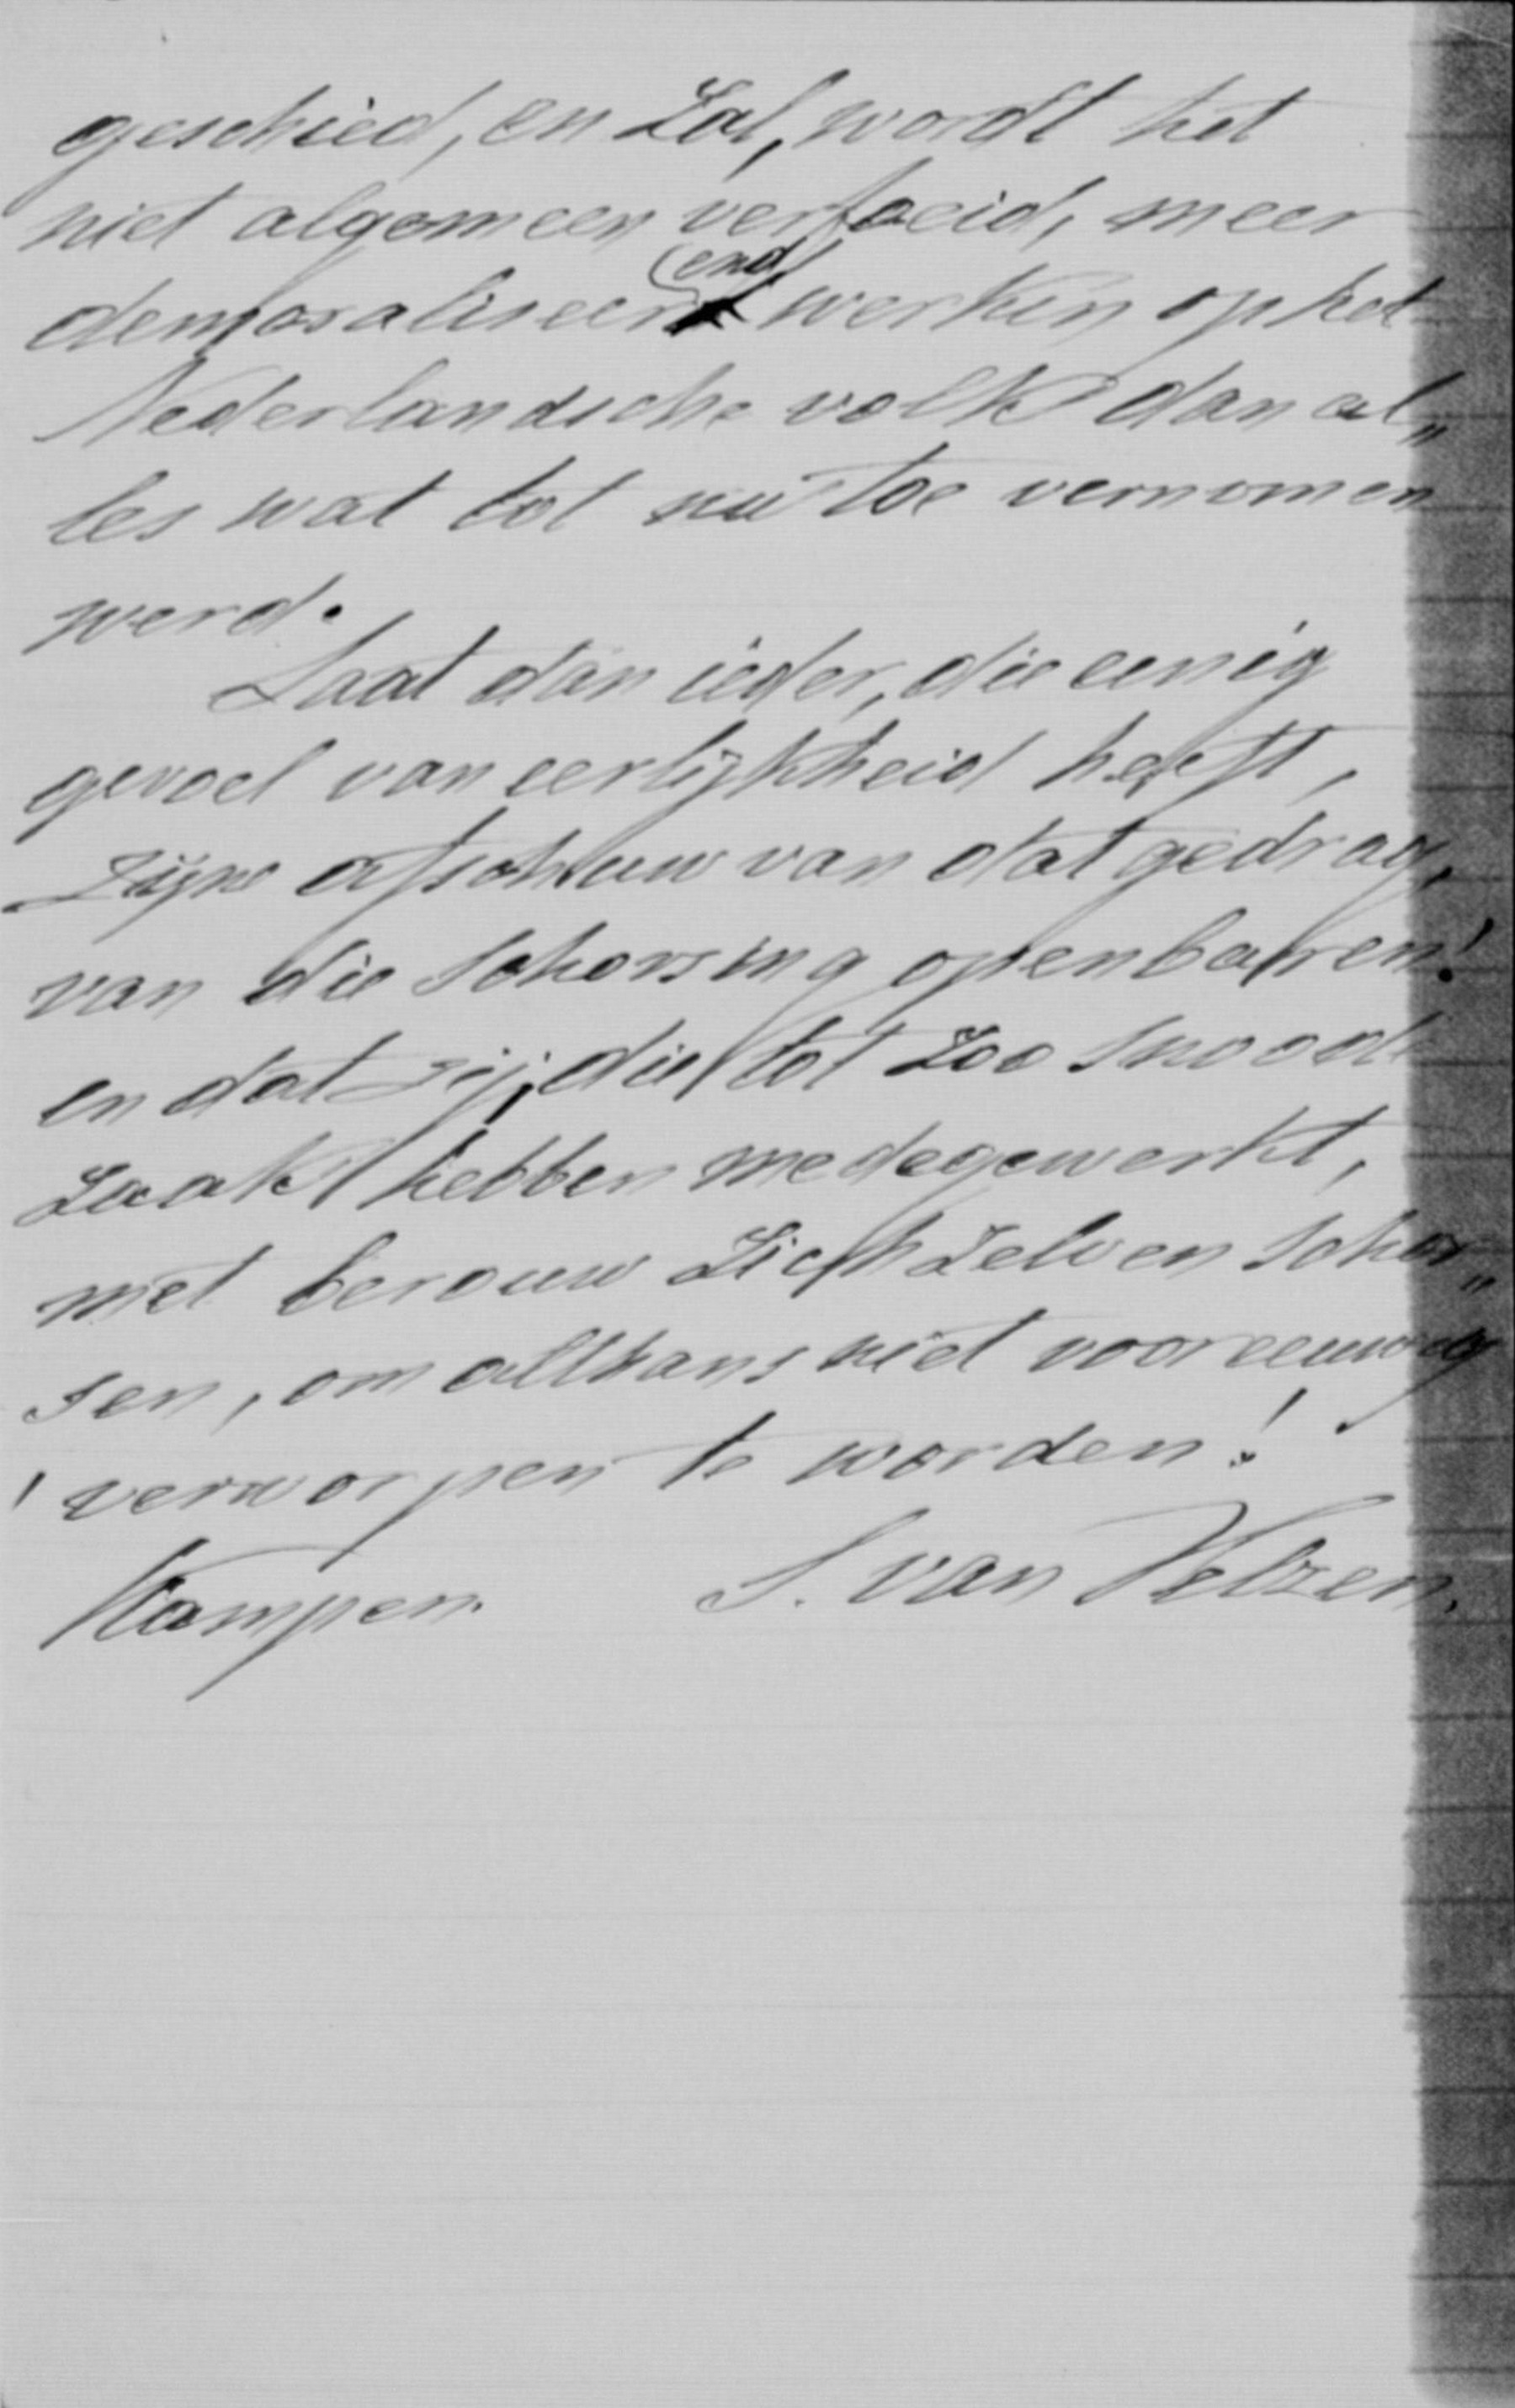 geschied, en zal, wordt het
niet algemeen verfoeid, meer
demoraliseerend werken op het
Nederlandsche volk dan al„
les wat tot nu toe vernomen
werd.
Laat dan ieder, die eenig
gevoel van eerlijkheid heeft,
zijne afschuw van dat gedrag,
van die schorsing openbaren!
en dat zij, die tot zoo snoode
zaak hebben medegewerkt,
met berouw zich zelven schor„
sen, om althans niet voor eeuwig
verworpen te worden!
Kampen. S. van Velzen.